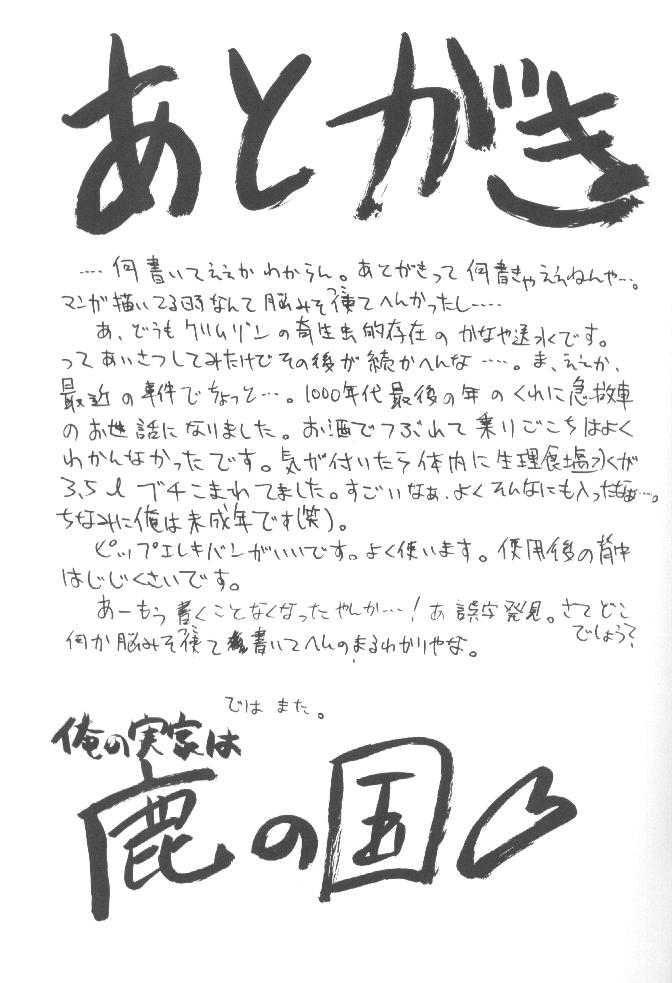 あとがき
‥‥何書いてええかわからん。あとがきって何書きゃええねんや‥。
マンガ描いてる時なんて脳みそ使てへんかったし‥‥
あ、どうもクリムゾンの寄生虫的存在のかなや送水です。
ってあいさつしてみたけどその後が続かへんな‥‥。ま、ええか、
最近の事件でちょっと‥‥。1000年代最後の年のくれに急救車
のお世話になりました。お酒でつぶれて乗りごこちはよく
わかんなかったです。気が付いたら体内に生理食塩水が
3,5lブチこまれてました。すごいなぁ、よくそんなにも入ったなぁ‥。
ちなみに俺は未成年です(笑)。
ピップエレキバンがいいです。よく使います。使用後の背中
はじじくさいです。
あーもう書くことなくなったやんか‥‥!あ誤字発見。さてどこ
でしょう?
何か脳みそ使て書いてへんのまるわかりやな。
ではまた。
俺の実家は
鹿の国